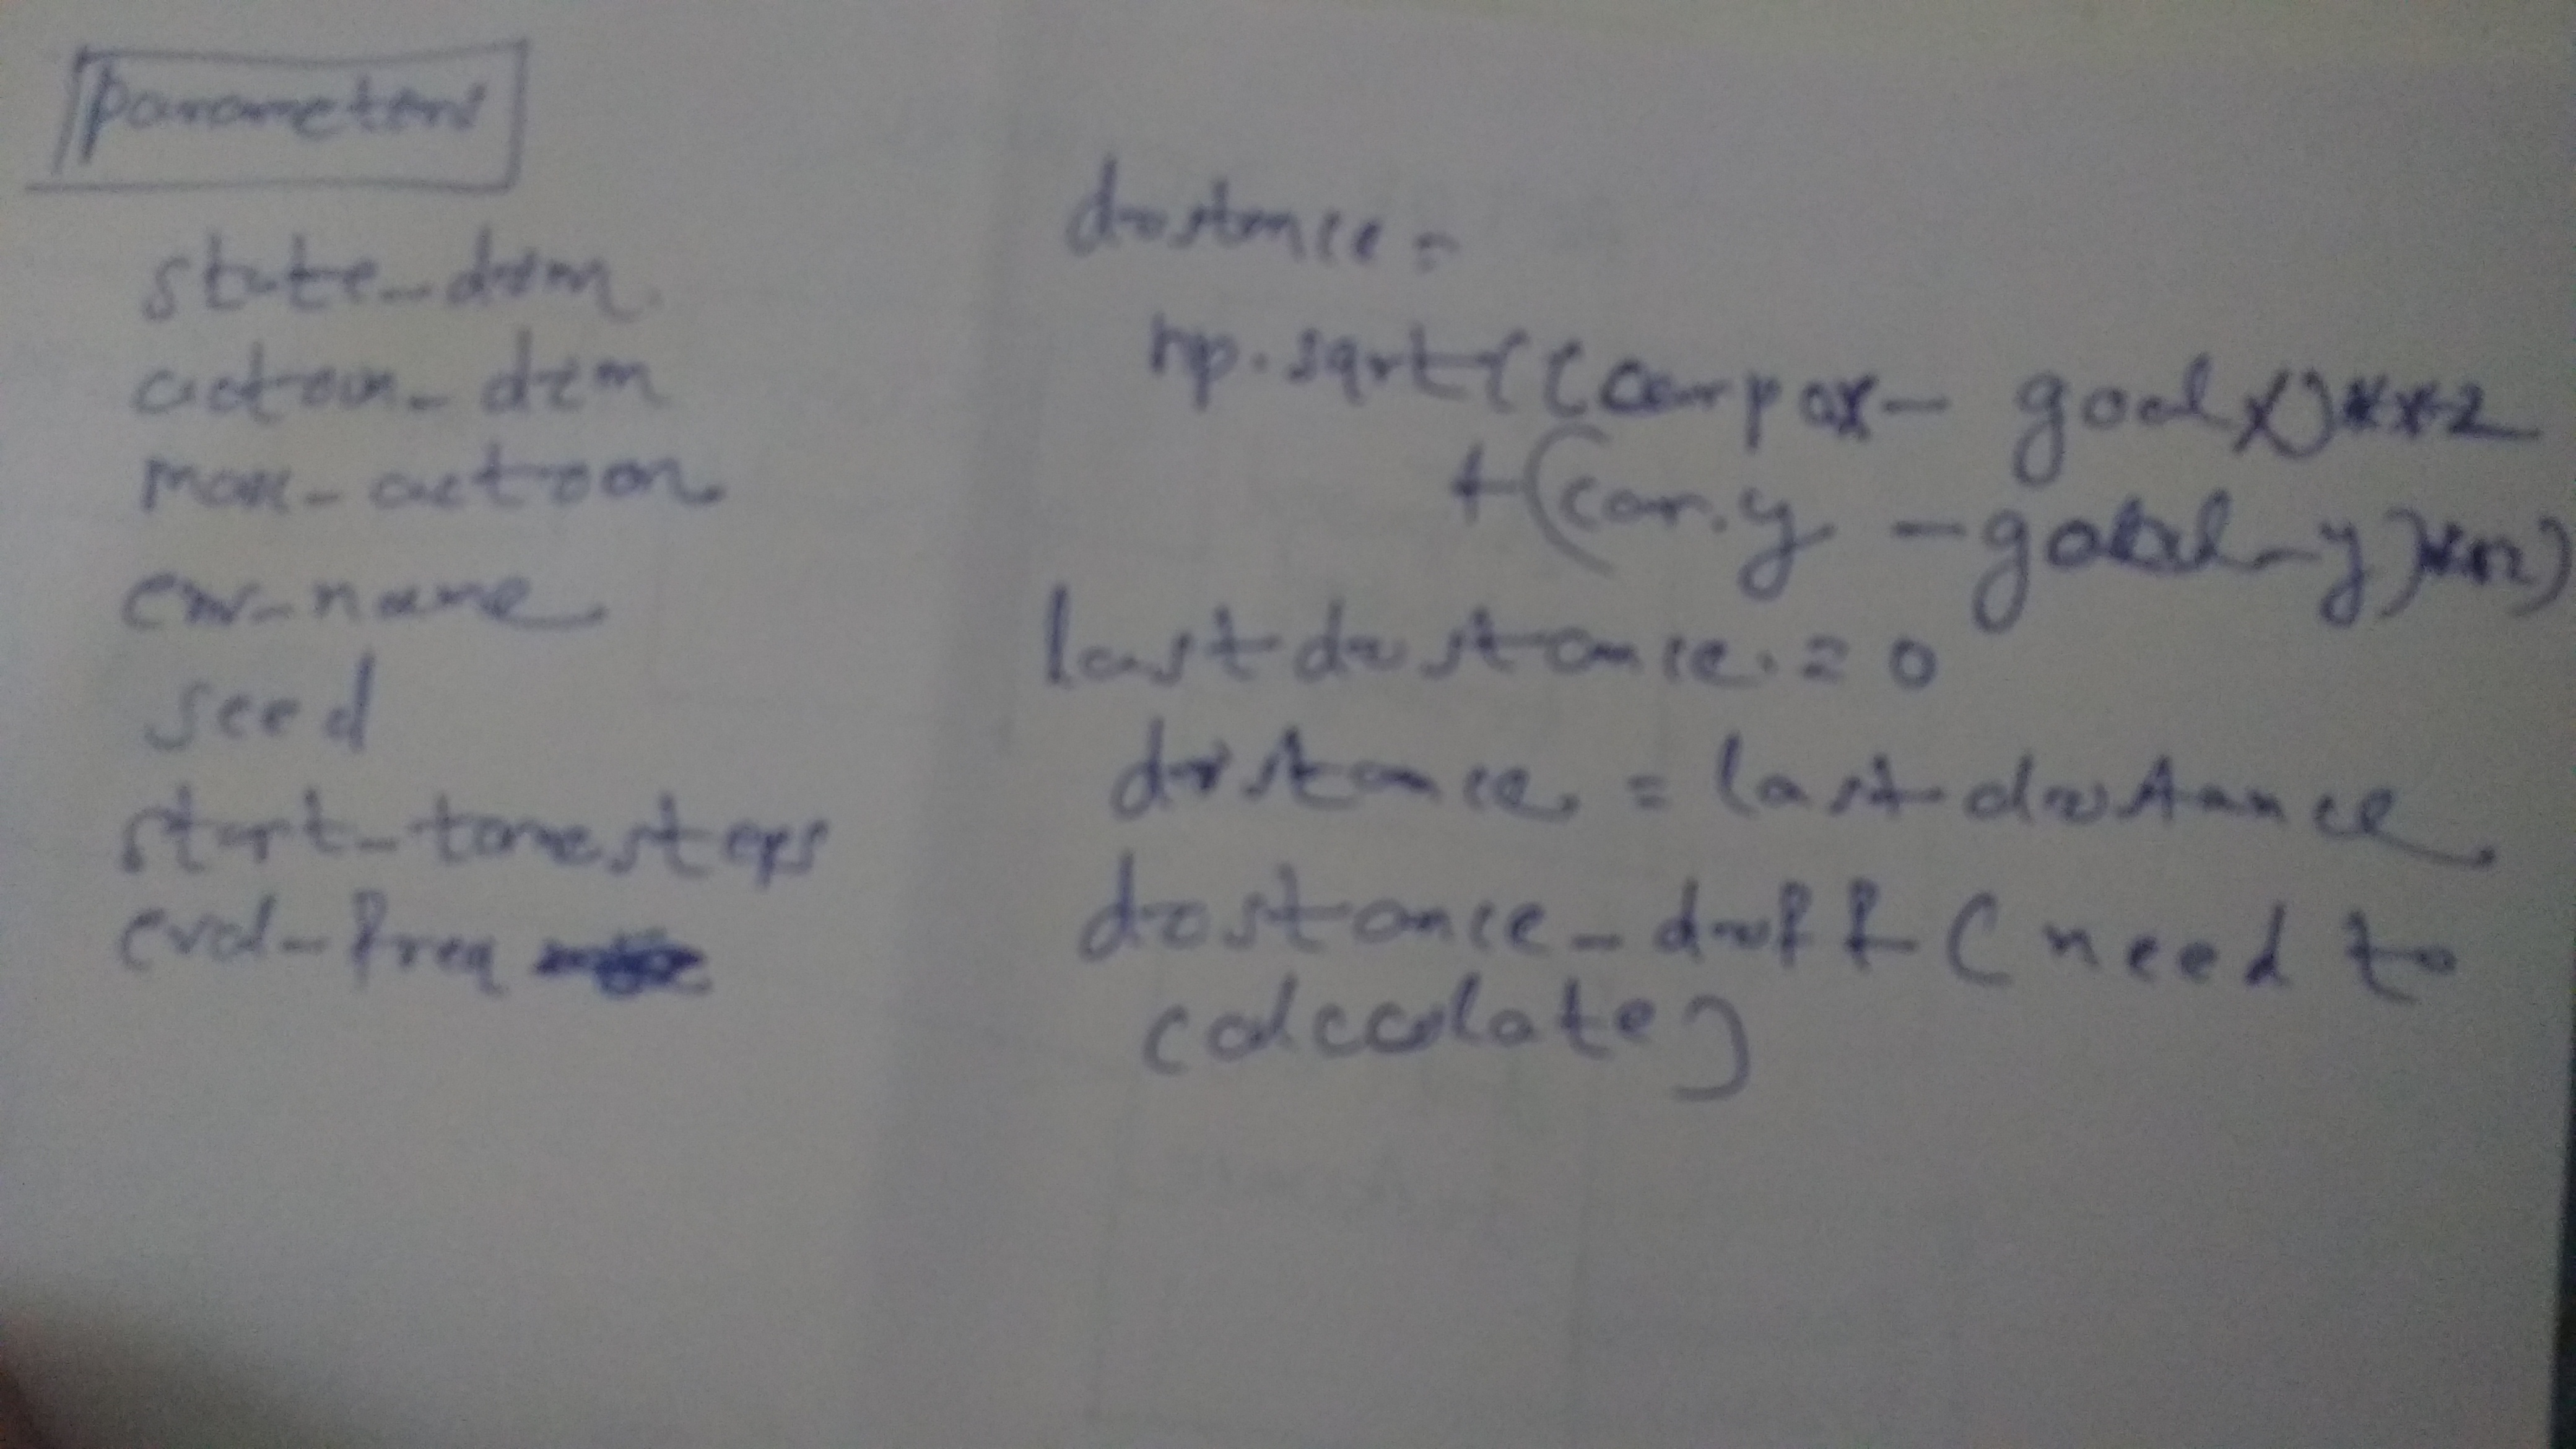 parameters
state_dim
action_dim
max_action
env_name
seed
start_timesteps
eval_freq
distance =
np.sqrt((car pos x - goal x)**2
+(car.y - goal_y)**2)
last distance = 0
distance = last distance
distance_diff (need to
calculate)